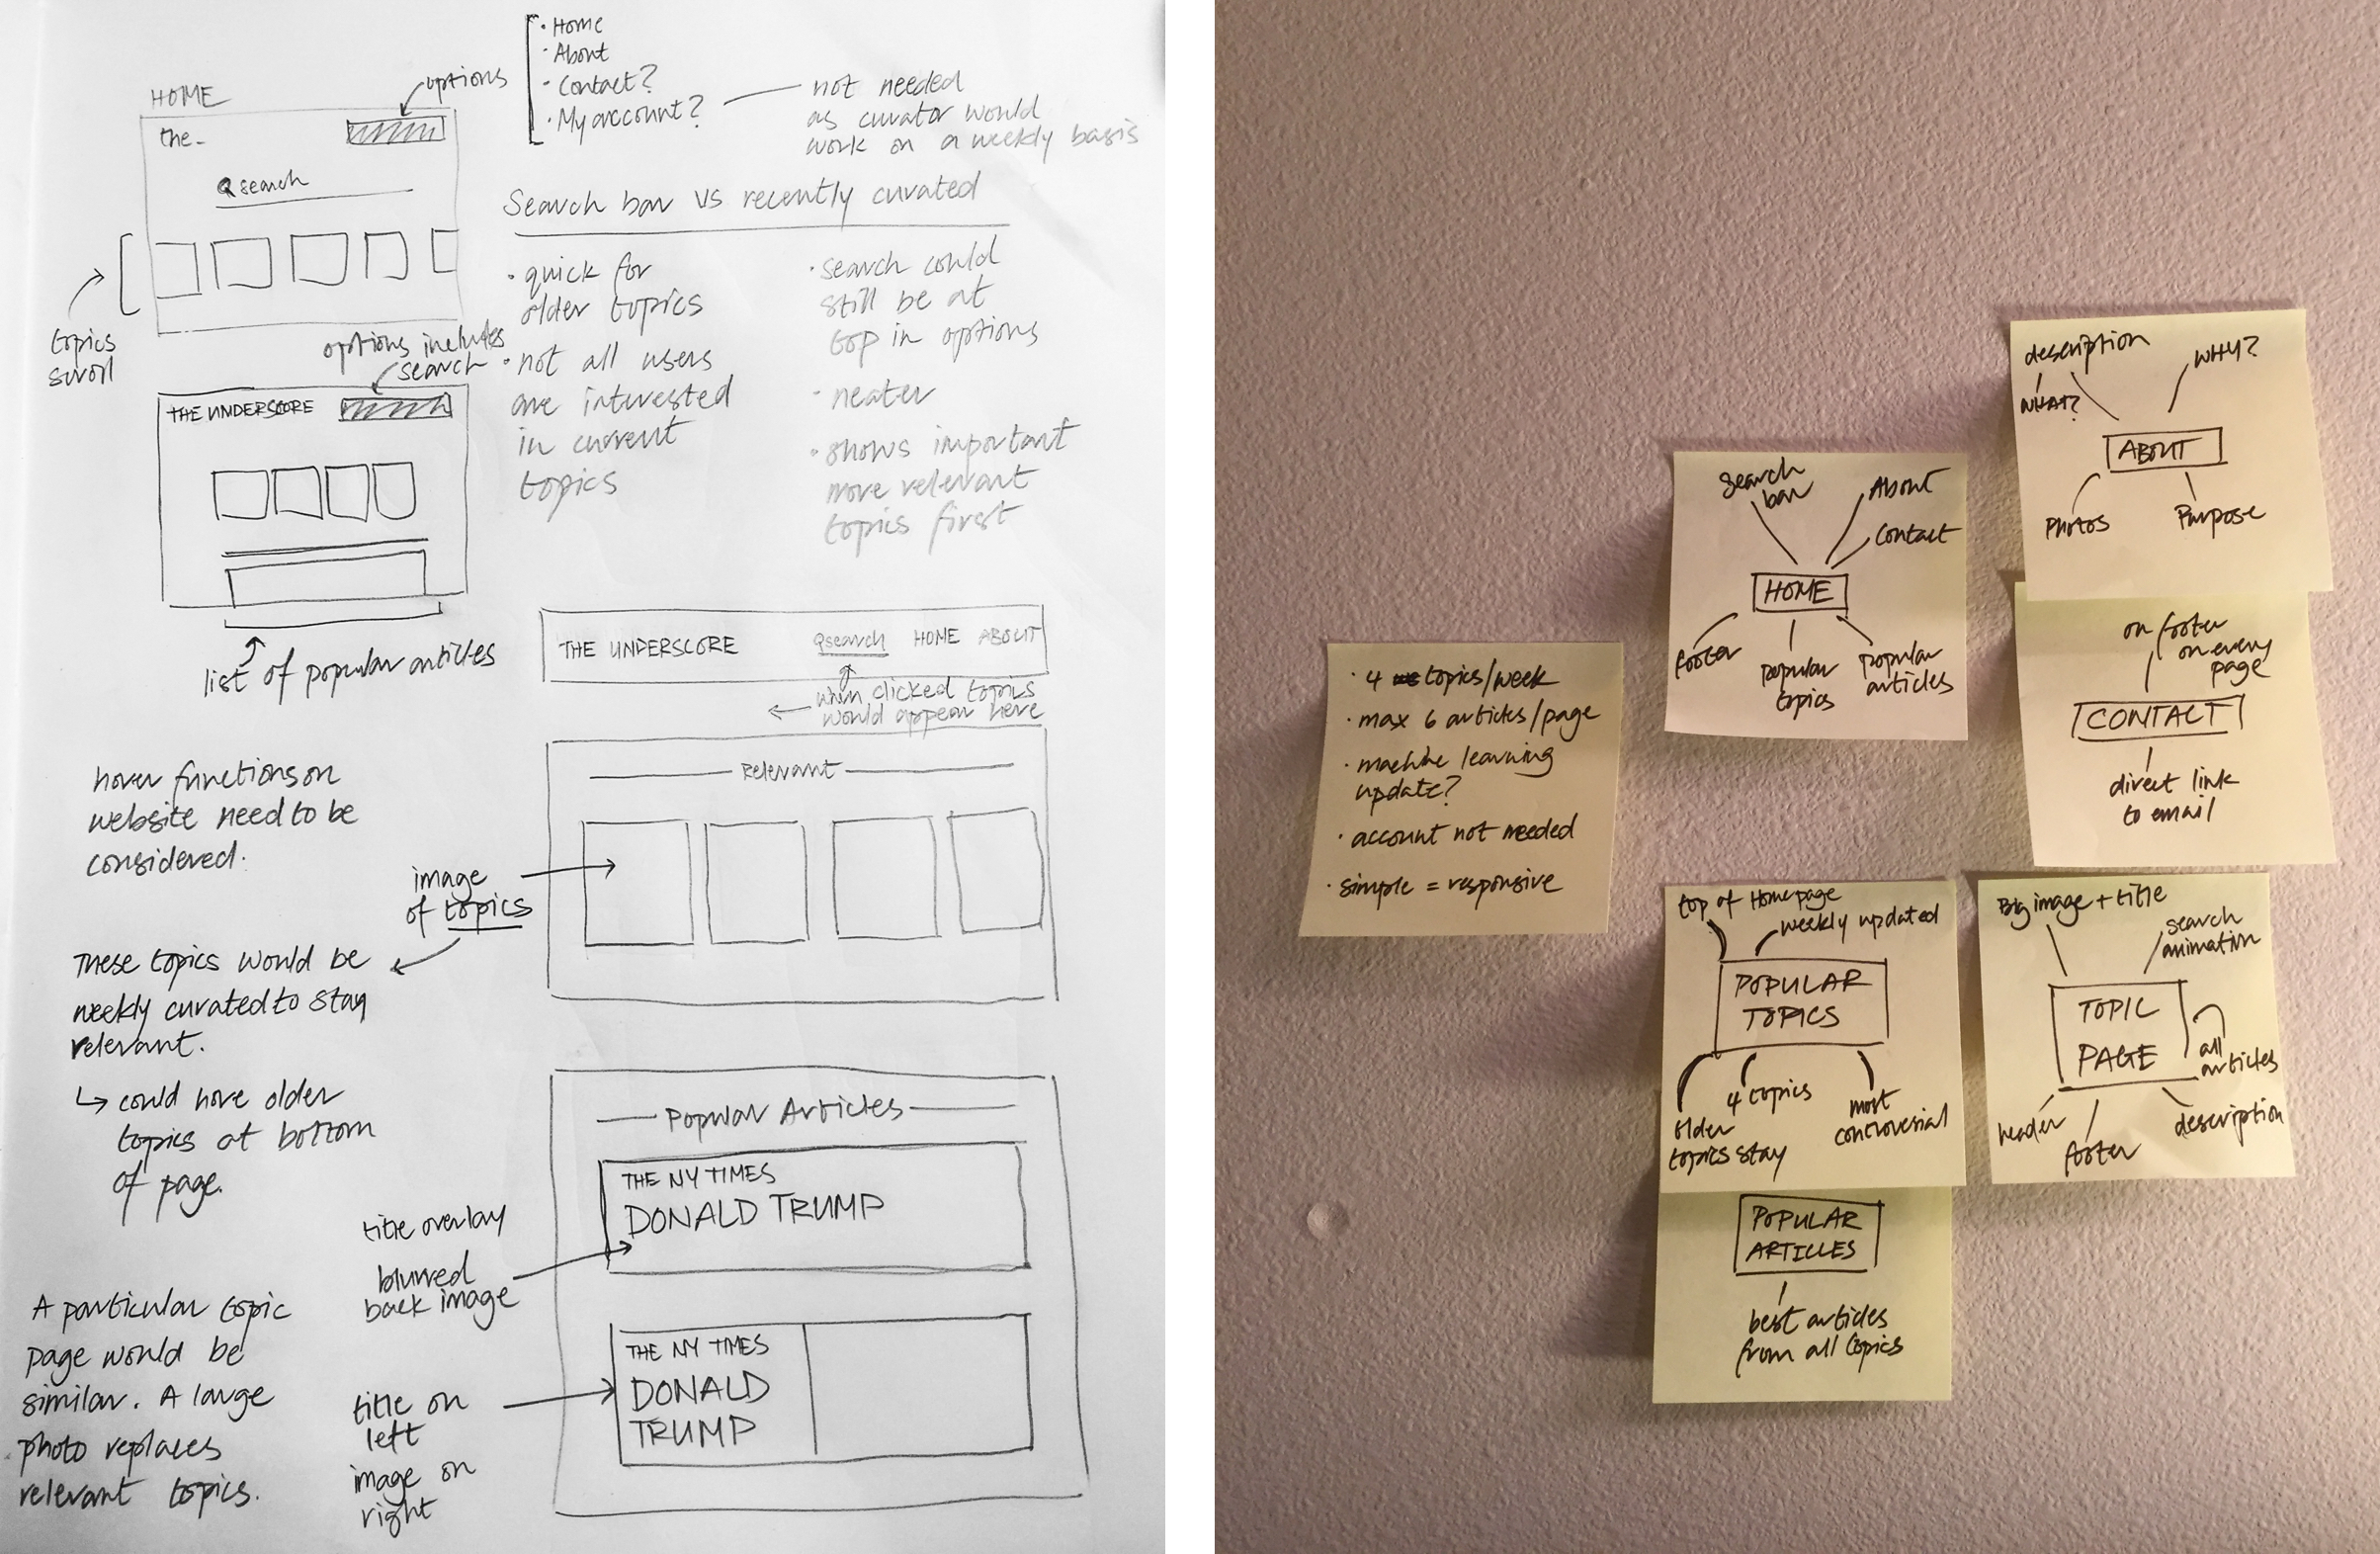 · Home
· About
· Contact?
· My account?
not needed
as curator would
work on a weekly basis
options
HOME
the-
search
topics
scroll
Search bar vs recently curated
· quick for
older topics
· not all users
are interested
in current
topics
· search could
still be at
top in options
· neater
· shows important
more relevant
topics first
options includes
search
THE UNDERSCORE
list of popular articles
THE UNDERSCORE search HOME ABOUT
when clicked topics
would appear here
hover functions on
website need to be
considered.
Relevant
image
of topics
These topics would be
weekly curated to stay
relevant.
↳ could have older
topics at bottom
of page.
Popular Articles
THE NY TIMES
DONALD TRUMP
title overlay
blurred
back image
A particular topic
page would be
similar. A large
photo replaces
relevant topics.
THE NY TIMES
DONALD
TRUMP
title on
left
image on
right
· 4 topics/week
· max 6 articles/page
· machine learning
update?
· account not needed
· simple = responsive
Search
bar
About
Contact
HOME
footer
popular
topics
popular
articles
description
WHAT?
WHY?
ABOUT
Photos
Purpose
on footer
on every
page
CONTACT
direct link
to email
top of Homepage
weekly updated
POPULAR
TOPICS
older
topics stay
4 topics
most
controversial
Big image + title
search
animation
TOPIC
PAGE
all
articles
header
footer
description
POPULAR
ARTICLES
best articles
from all topics